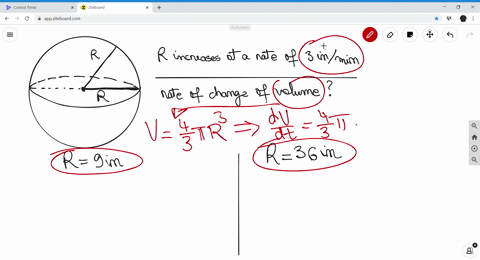 Control Panel
Ziteboard
app.ziteboard.com
R
R
R increases at a rate of 3 in/min
rate of change of volume?
V = 4/3 πR³ ⇒ dV/dt = 4/3 π
R = 9 in
R = 36 in